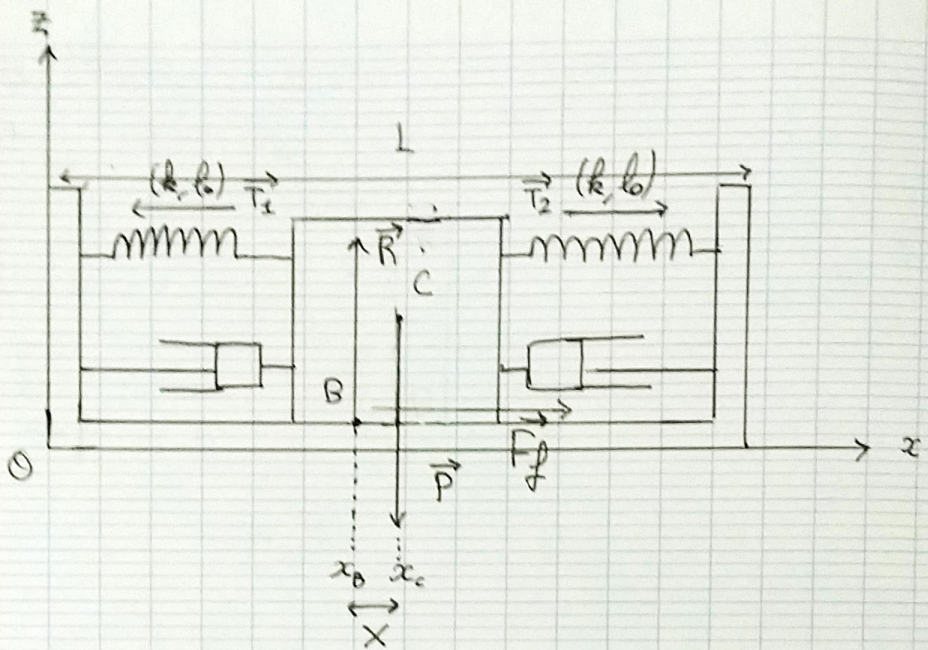 z
L
(k, l₀) T⃗₁ T⃗₂ (k, l₀)
R⃗
C
B
F⃗f
O x
P⃗
x_B x_c
X